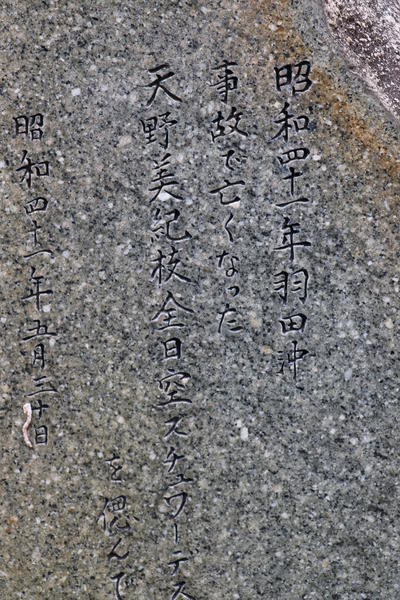 昭和四十一年羽田沖
事故で亡くなった
天野美紀枝全日空スチュワーデス
を偲んで
昭和四十一年五月三十日